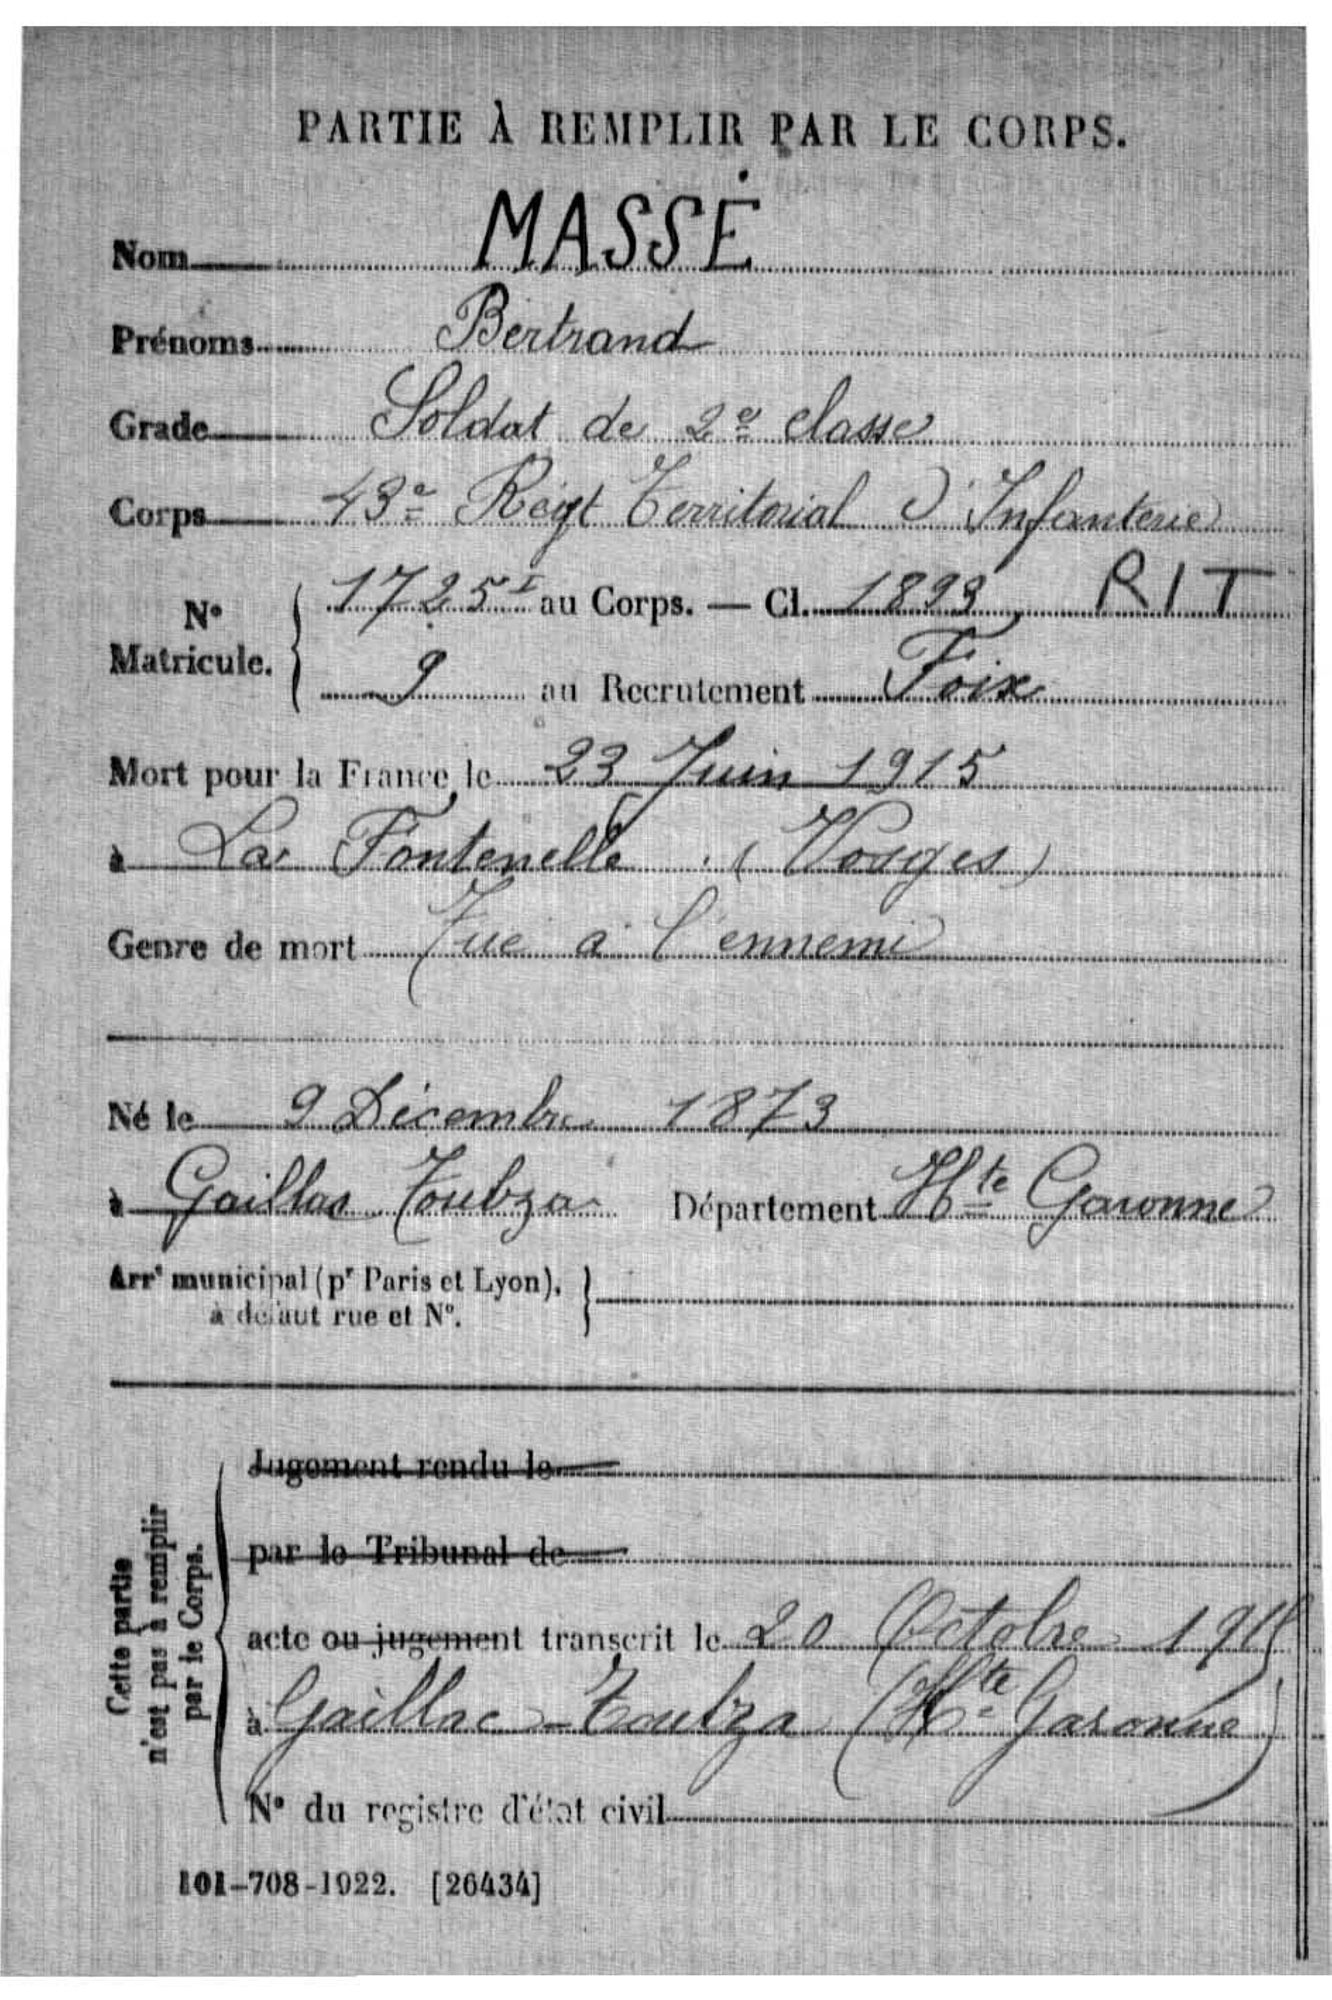 PARTIE À REMPLIR PAR LE CORPS.
Nom MASSÉ
Prénoms Bertrand
Grade Soldat de 2e classe
Corps 43e Regt Territorial d'Infanterie
N° Matricule. 1725 I au Corps. — Cl. 1893 RIT
9 au Recrutement Foix
Mort pour la France le 23 Juin 1915
à La Fontenelle (Vosges)
Genre de mort Tué à l'ennemi
Né le 9 Décembre 1873
à Gaillac Toulza Département Hte Garonne
Arrt municipal (pr Paris et Lyon),
à défaut rue et N°.
Cette partie
n'est pas à remplir
par le Corps.
Jugement rendu le
par le Tribunal de
acte ou jugement transcrit le 20 Octobre 1915
à Gaillac-Toulza (Hte Garonne)
N° du registre d'état civil
101-708-1922. [26434]